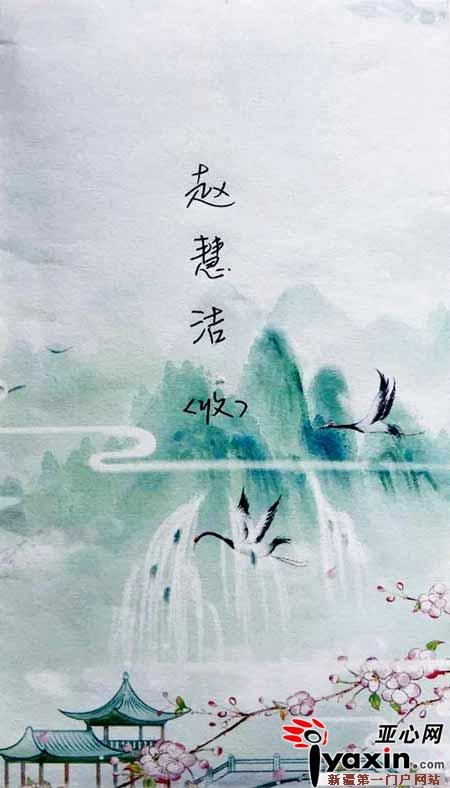 赵
慧
洁
(收)
亚心网
iyaxin.com
新疆第一门户网站